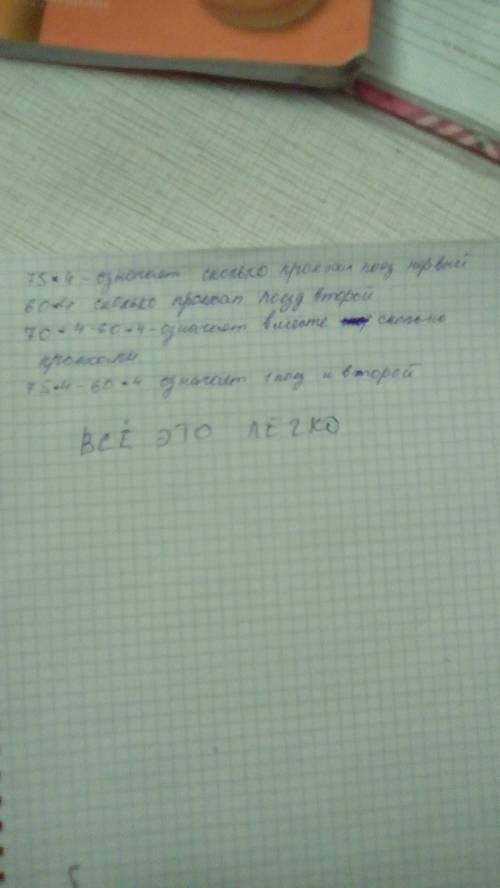 75•4 - означает сколько проехал поезд первый
60•4 сколько проехал поезд второй
70•4-60•4-означает вместе сколько
проехали
75•4-60•4 означает 1 поезд и второй
ВСЁ ЭТО ЛЕГКО